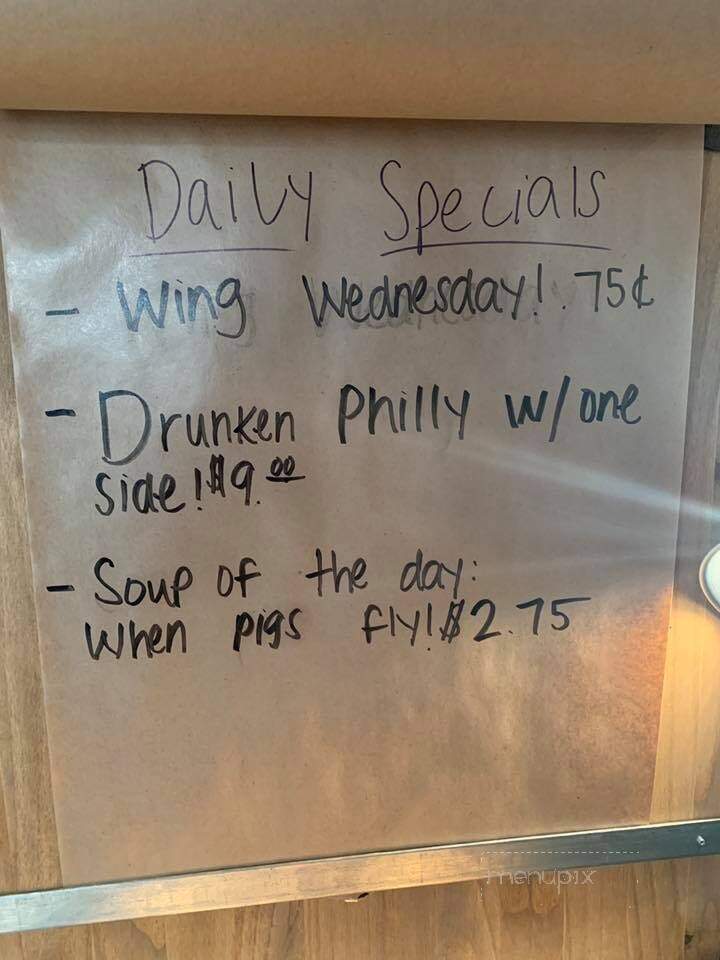 Daily Specials
- Wing Wednesday! .75¢
- Drunken Philly w/ one
side! $9.00
- Soup of the day:
When pigs fly! $2.75
menupix